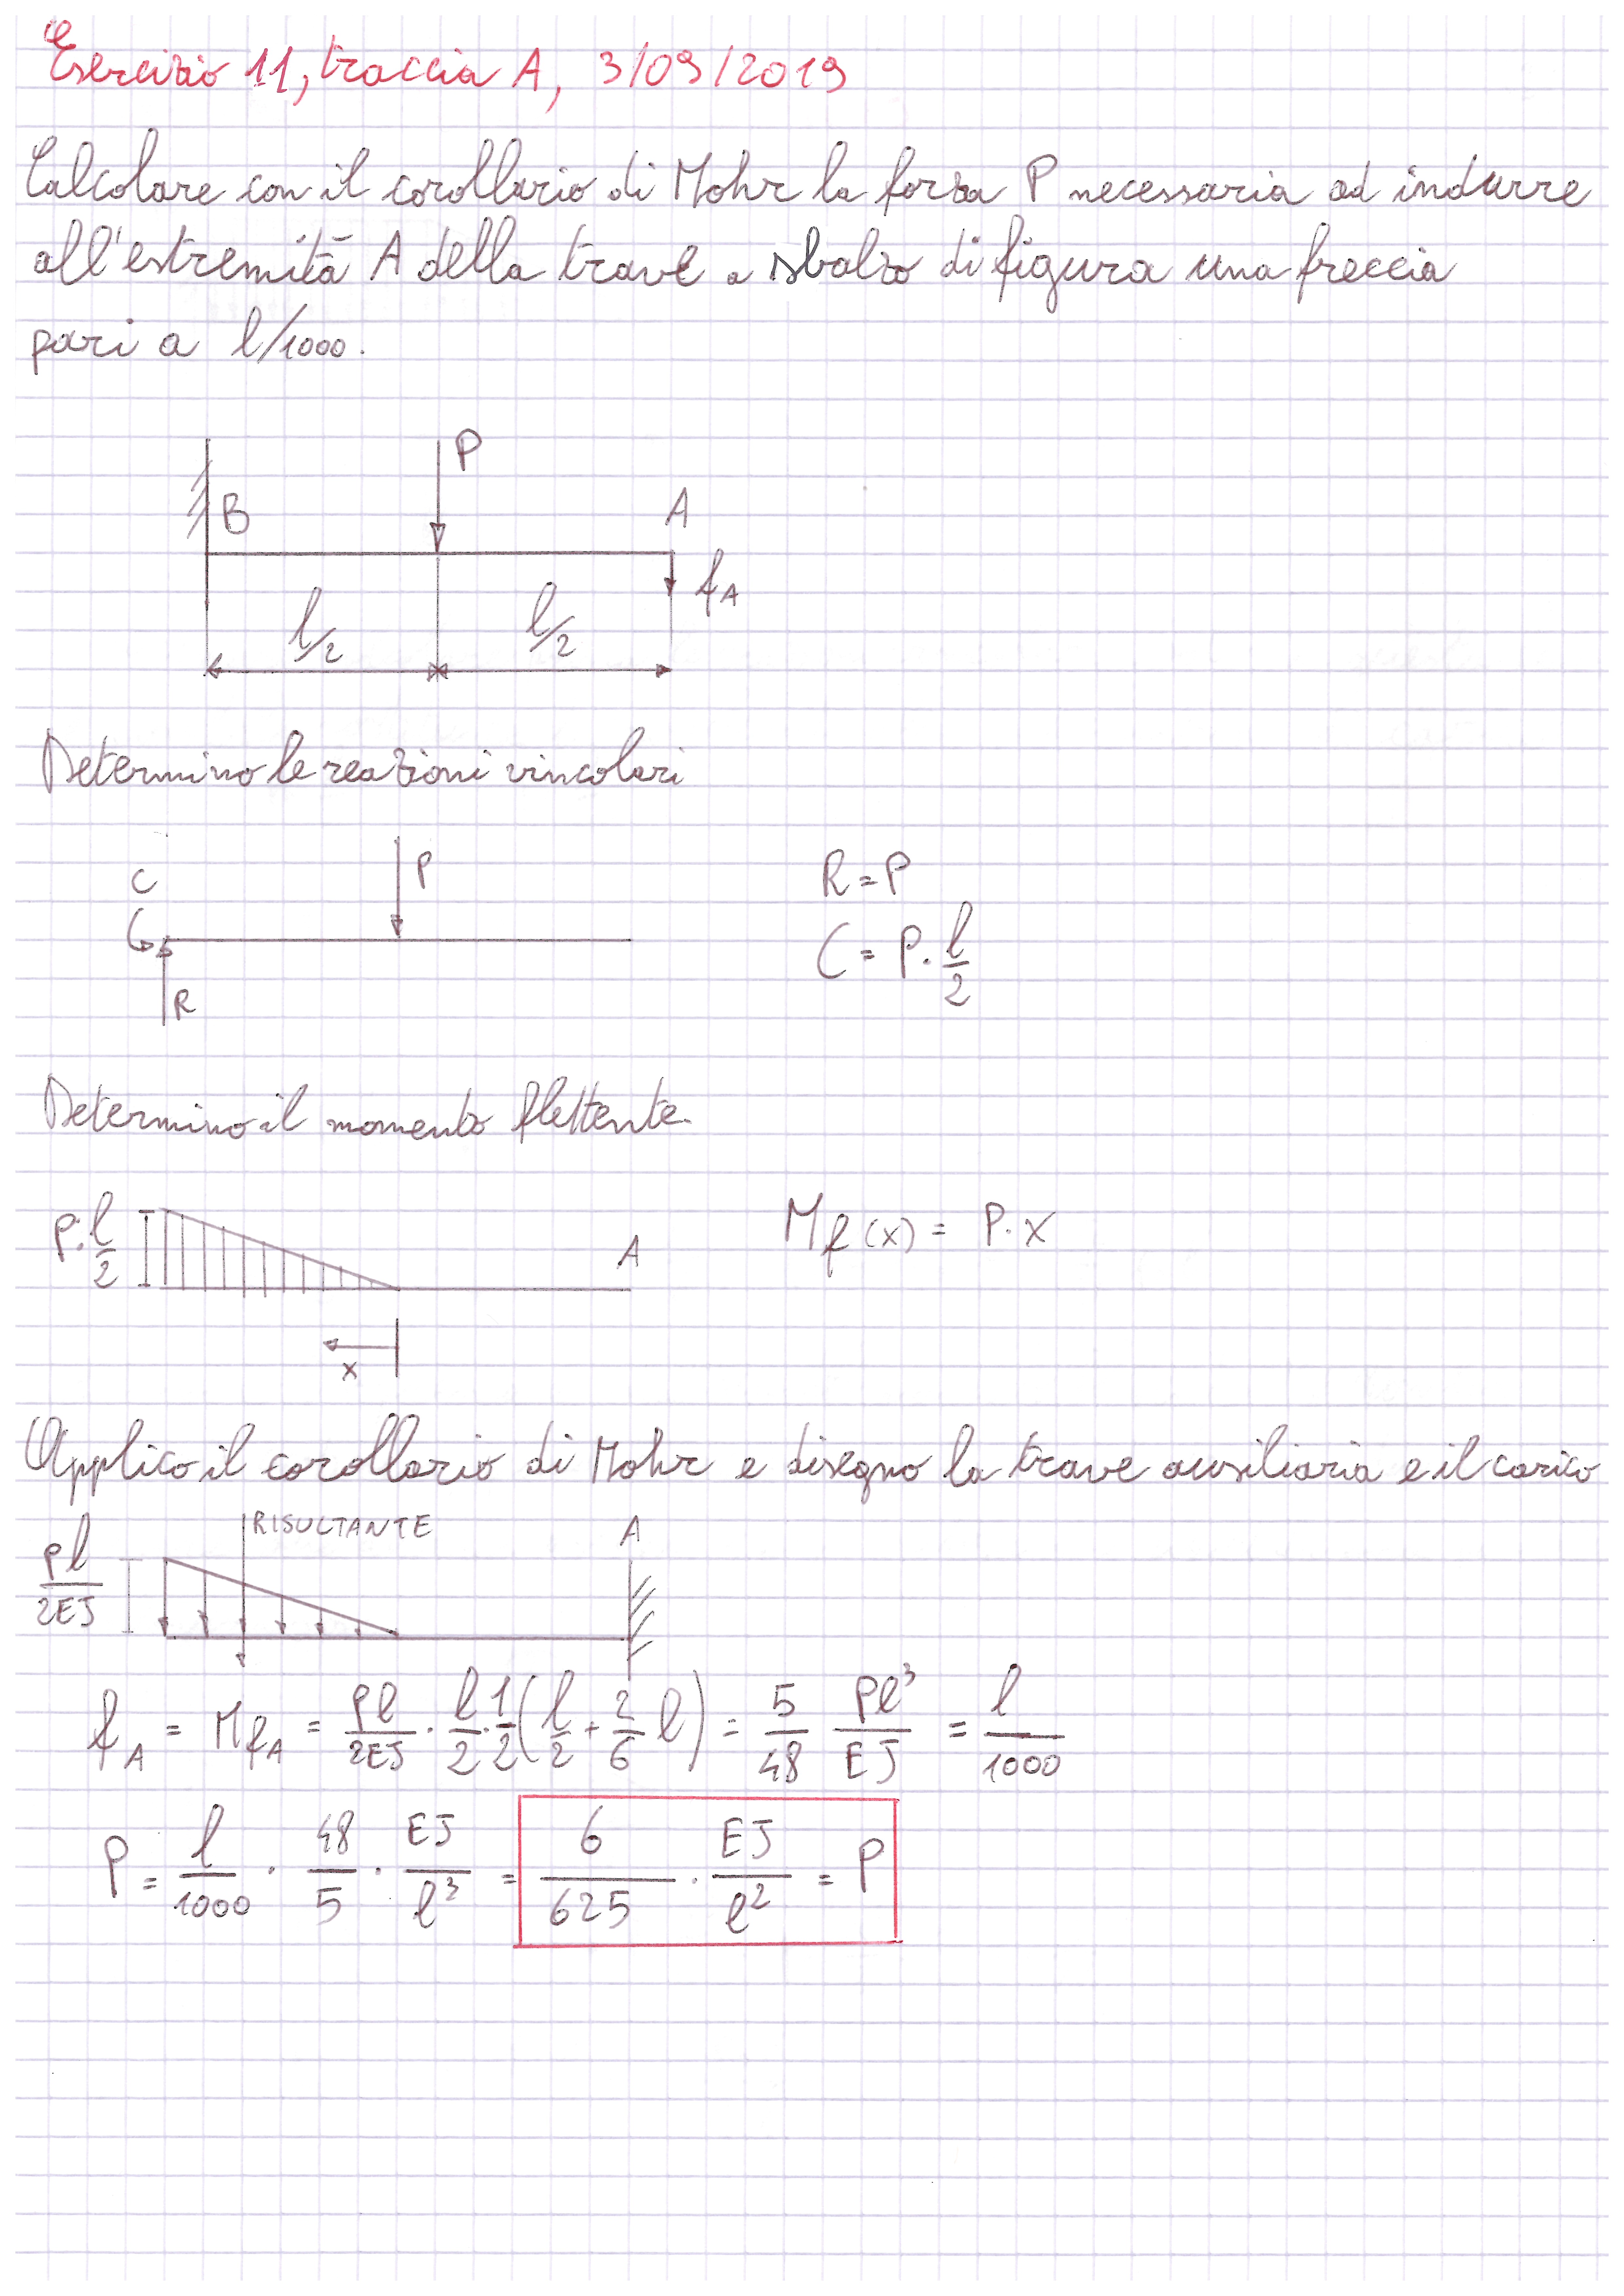 Esercizio 11, traccia A, 3/09/2019
Calcolare con il corollario di Mohr la forza P necessaria ad indurre
all'estremità A della trave a sbalzo di figura una freccia
pari a l/1000.
P
B
A
fA
l/2
l/2
Determino le reazioni vincolari
C
P
R
R = P
C = P · l/2
Determino il momento flettente.
P · l/2
A
Mf(x) = P · x
x
Applico il corollario di Mohr e disegno la trave ausiliaria e il carico
RISULTANTE
A
Pl/2EJ
fA = MfA = Pl/2EJ · l/2 · 1/2 (l/2 + 2/6 l) = 5/48 Pl³/EJ = l/1000
P = l/1000 · 48/5 · EJ/l³ = 6/625 · EJ/l² = P